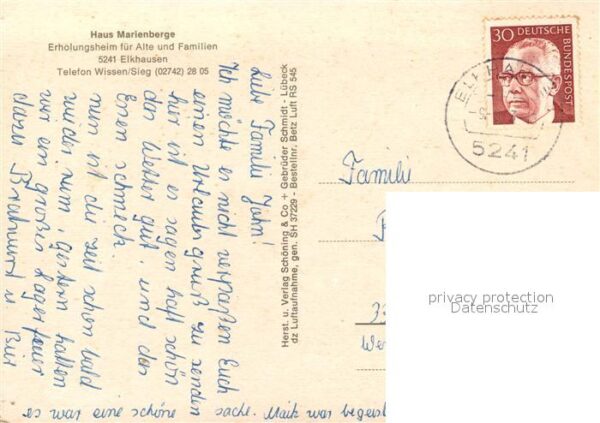 Haus Marienberge
Erholungsheim für Alte und Familien
5241 Elkhausen
Telefon Wissen/Sieg (02742) 28 05
Liebe Familie Jahn!
Ich möchte es nicht verpaßen Euch
einen Urlaubsgruß zu senden
hier ist es sagen haft schön
das Wetter gut, und das
Essen schmeck.
nun ist die Zeit schon bald
wieder rum, gestern hatten
wir ein großes Lagerfeuer
dazu Bratwurst u Bier
es war eine schöne sache. Maik war begeist
Herst. u. Verlag Schöning & Co + Gebrüder Schmidt - Lübeck
dz Luftaufnahme, gen. SH 37229 - Bestellnr. Betz Luft RS 545
30 DEUTSCHE BUNDESPOST
ELKHAU
5241
Familie
privacy protection
Datenschutz